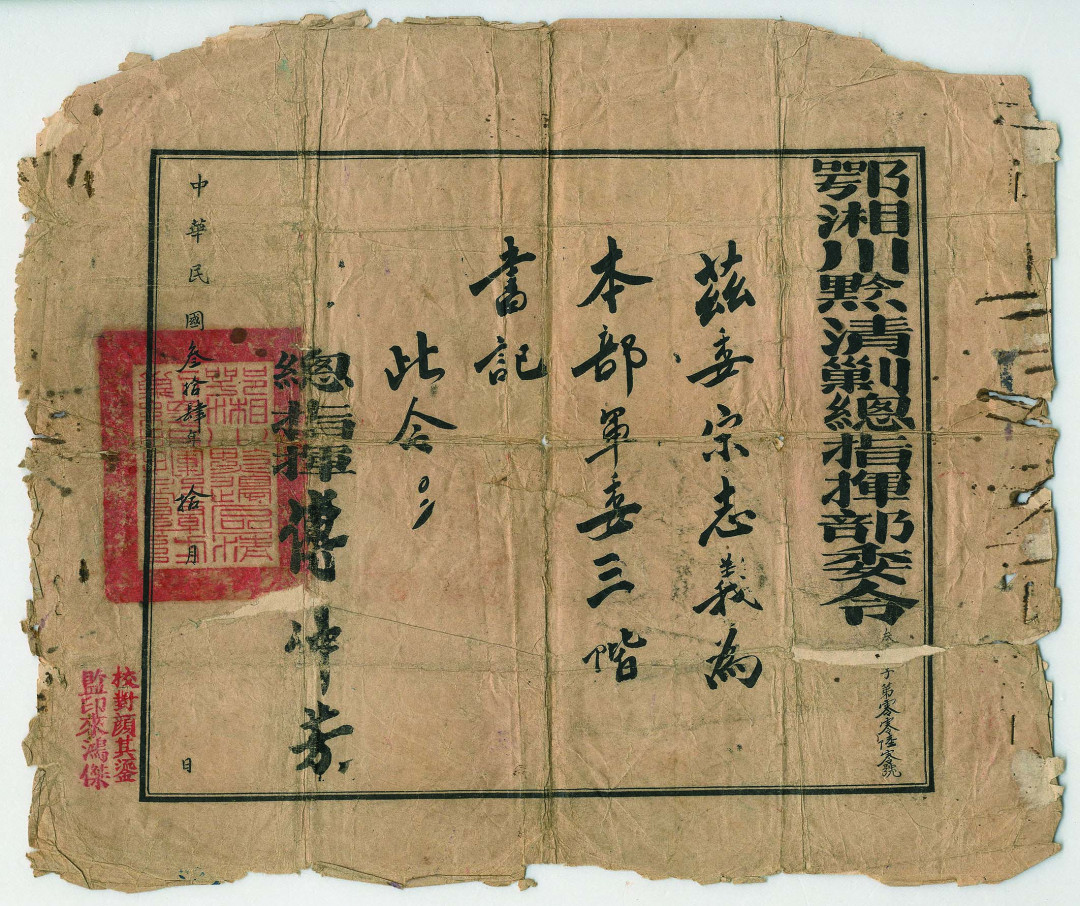 鄂湘川黔清剿總指揮部委令
參 字第零零陸零號
茲委宗志義為
本部軍委三階
書記
此令
總指揮傅仲芳
中華民國叁拾肆年拾月 日
校對顏其鎏
監印來鴻傑